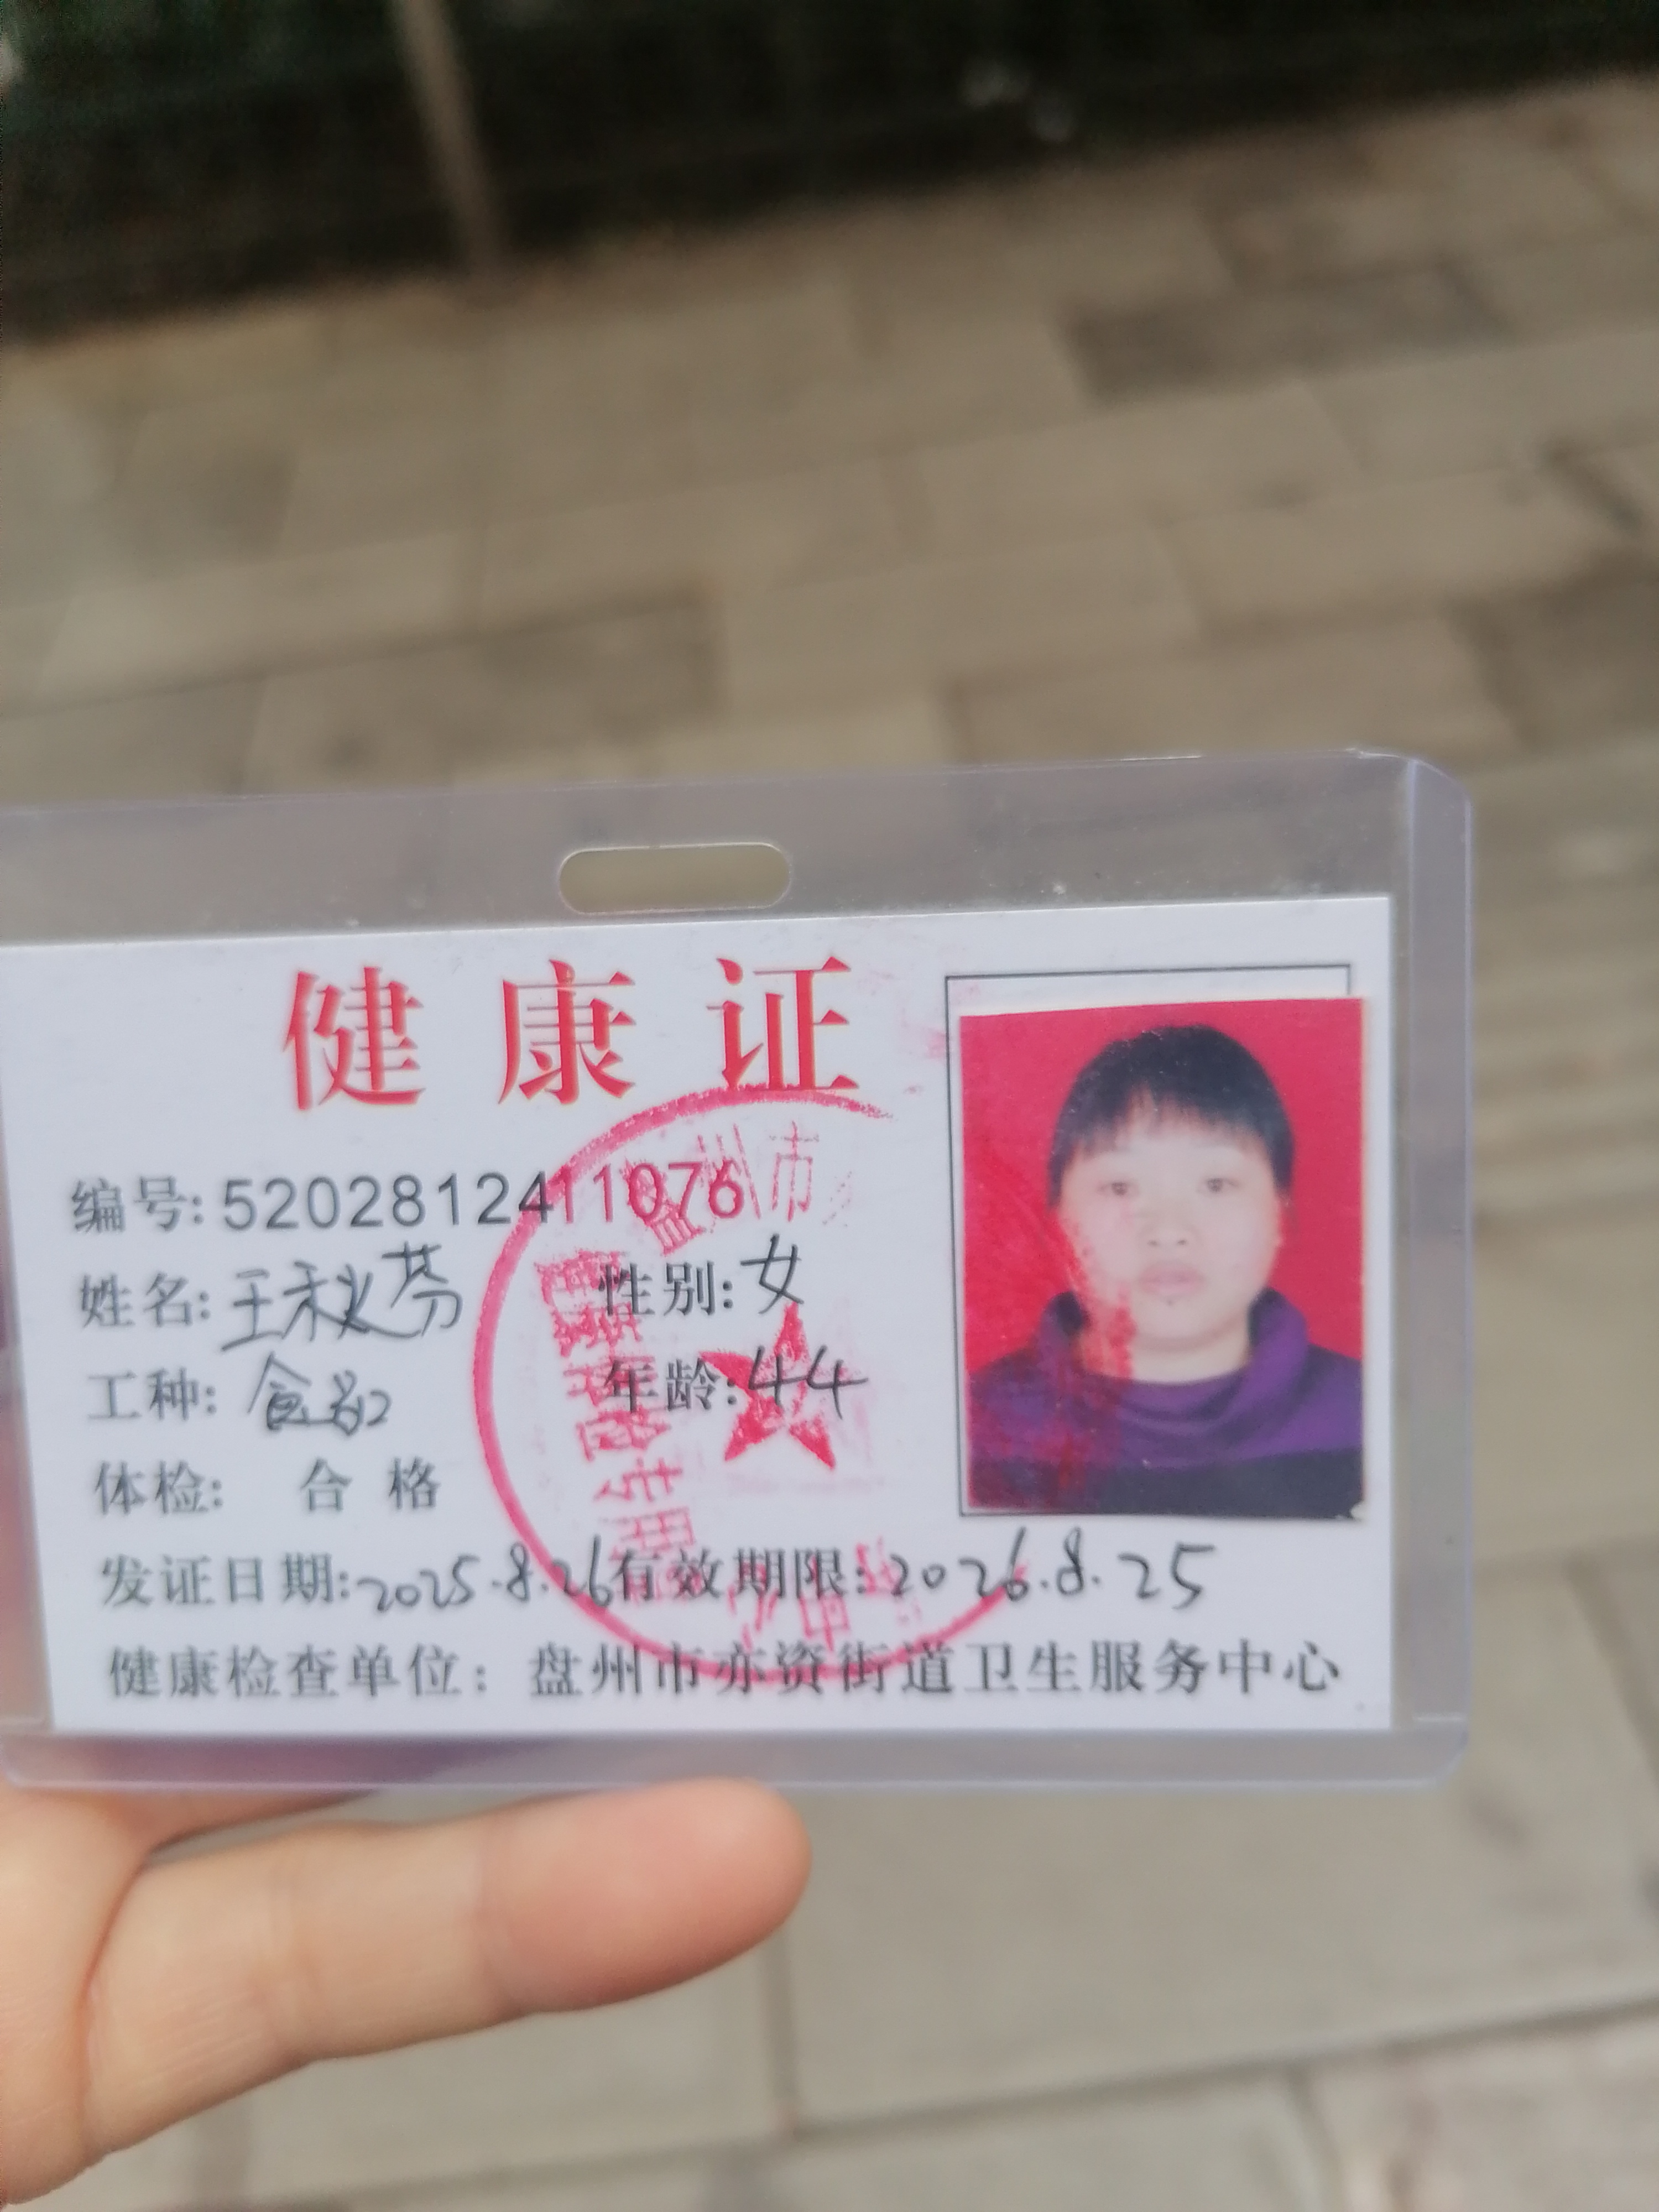 健康证
编号: 5202812411076
姓名: 王秋芬 性别: 女
工种: 食品 年龄: 44
体检: 合格
发证日期: 2025.8.26 有效期限: 2026.8.25
健康检查单位：盘州市亦资街道卫生服务中心